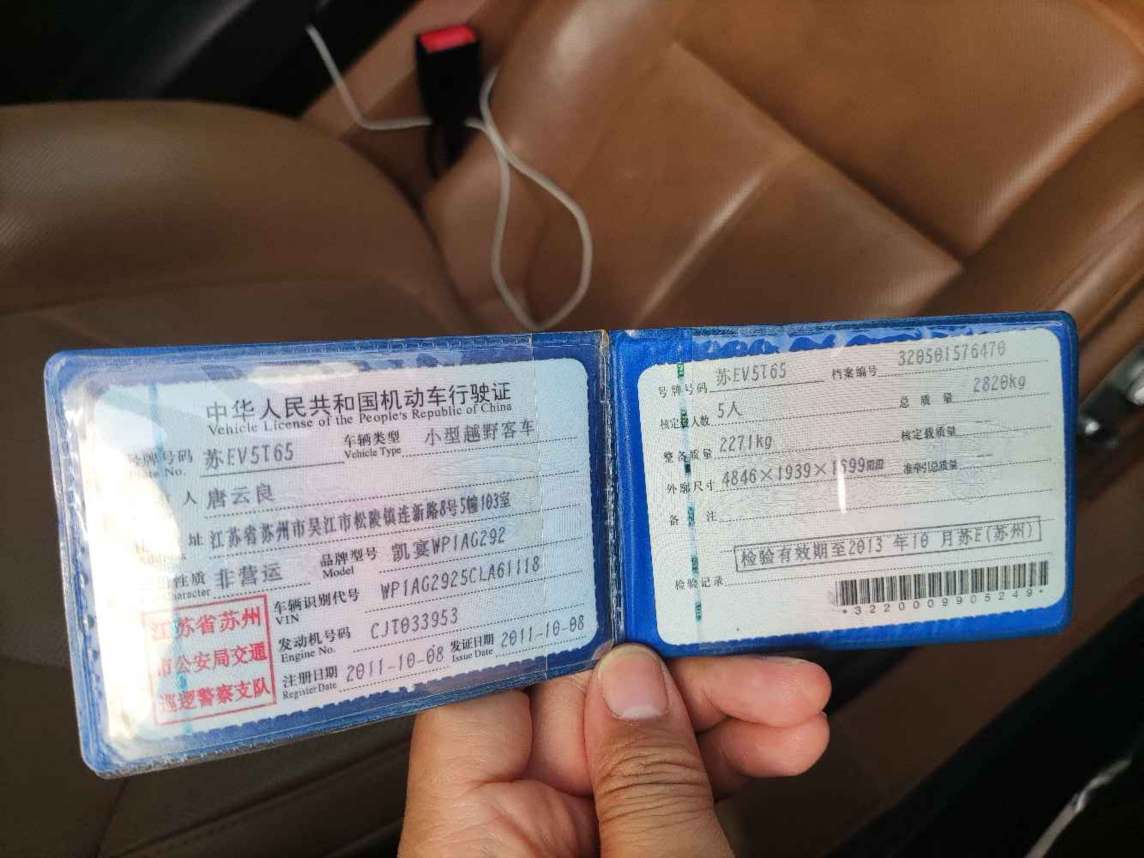 中华人民共和国机动车行驶证
Vehicle License of the People's Republic of China
号牌号码 苏EV5T65 车辆类型 小型越野客车
No. Vehicle Type
人 唐云良
址 江苏省苏州市吴江市松陵镇连新路8号5幢103室
性质 非营运 品牌型号 凯宴WP1AG292
Character Model
车辆识别代号 WP1AG2925CLA61118
VIN
发动机号码 CJT033953
Engine No.
注册日期 2011-10-08 发证日期 2011-10-08
Register Date Issue Date
江苏省苏州
市公安局交通
巡逻警察支队
号牌号码 苏EV5T65 档案编号 320501576470
核定载人数 5人 总质量 2820kg
整备质量 2271kg 核定载质量 —
外廓尺寸 4846×1939×1699mm 准牵引总质量 —
备注
检验有效期至2013年10月苏E(苏州)
检验记录
*3220009905249*